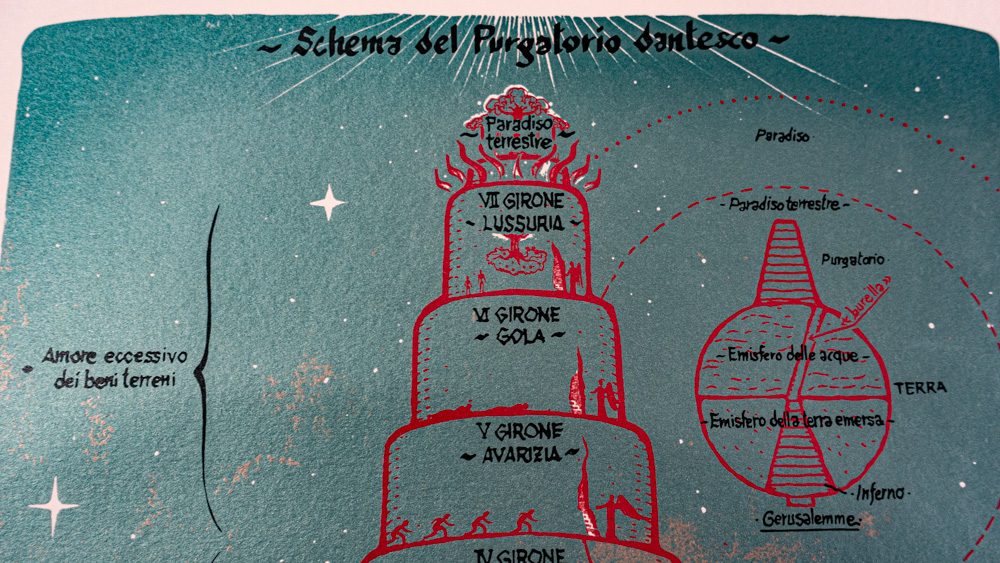 ~ Schema del Purgatorio dantesco ~
~ Paradiso ~
terrestre
VII GIRONE
~ LUSSURIA ~
VI GIRONE
~ GOLA ~
V GIRONE
~ AVARIZIA ~
IV GIRONE
Amore eccessivo
dei beni terreni
Paradiso
- Paradiso terrestre -
Purgatorio
« burella »
- Emisfero delle acque -
TERRA
- Emisfero della terra emersa -
· Inferno ·
· Gerusalemme ·